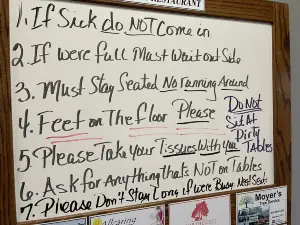 RESTAURANT
1. If Sick do NOT Come in
2. If were full Must Wait out Side
3. Must Stay Seated No running Around
4. Feet on The floor Please
Do Not
Sit At
Dirty
Tables
5 Please Take your Tissues With you
6. Ask for Anything thats NOT on Tables
7. Please Don't Stay Long if were Busy Need Seats
Allcaring
Moyer's